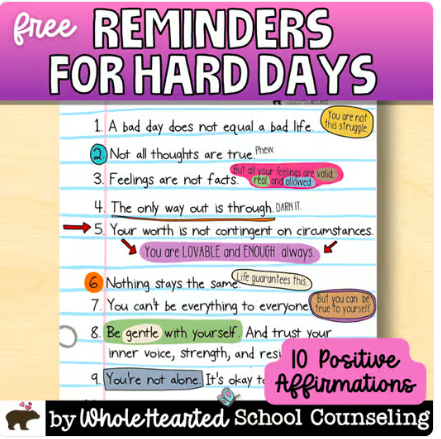 free REMINDERS
FOR HARD DAYS
1. A bad day does not equal a bad life.
You are not
this struggle
2. Not all thoughts are true. Phew.
3. Feelings are not facts.
But all your feelings are valid,
real, and allowed.
4. The only way out is through. DARN IT.
5. Your worth is not contingent on circumstances.
You are LOVABLE and ENOUGH always.
6 Nothing stays the same.
Life guarantees this.
7. You can't be everything to everyone.
But you can be
true to yourself
8. Be gentle with yourself. And trust your
inner voice, strength, and
9. You're not alone. It's okay
10 Positive
Affirmations
by WholeHearted School Counseling